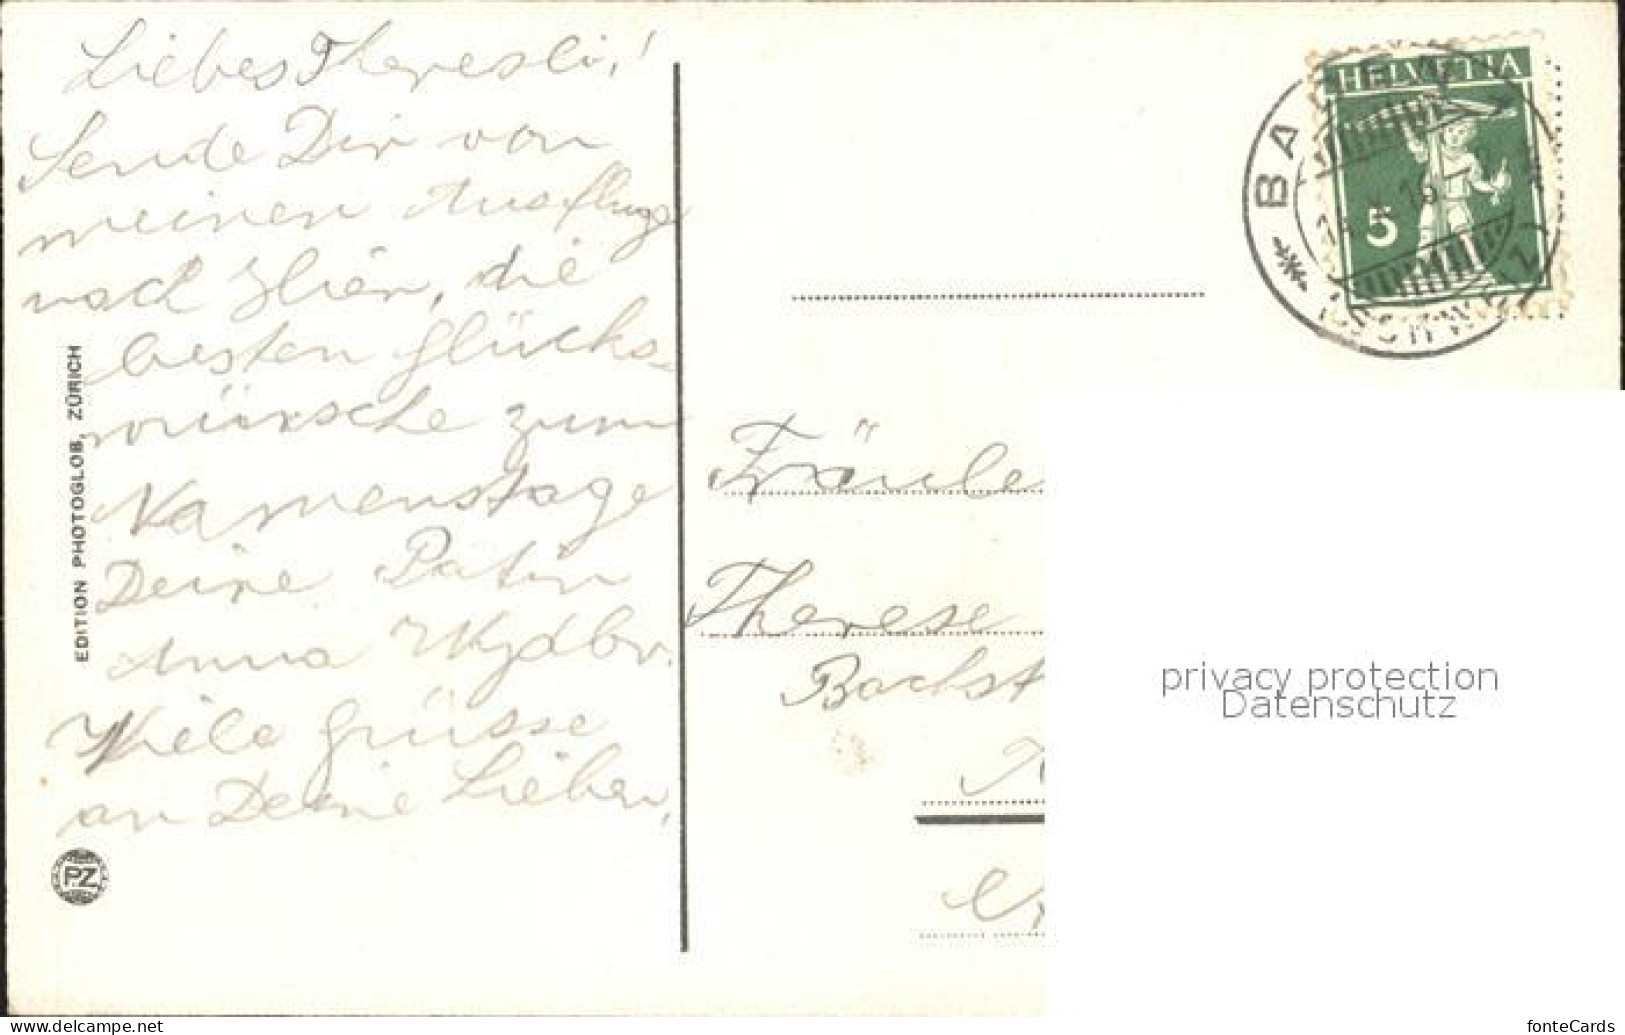 Liebes Theresli!
Sende Dir von
meinen Ausfluge
nach hier, die
besten Glücks-
wünsche zum
Namenstage
Deine Patin
Anna
Viele Grüsse
an Deine Lieben,
EDITION PHOTOGLOB, ZÜRICH
PZ
HELVETIA
5
BA
Fräule
Therese
Bachst
privacy protection
Datenschutz
www.delcampe.net
fonteCards